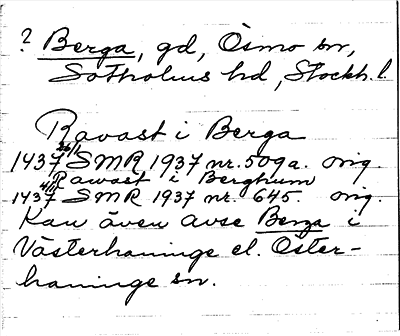 ? Berga, gd, Ösmo sn,
Sotholms hd, Stockh. l.
Ravast i Berga
1437 26/1 SMR 1937 nr. 509a. orig.
Rawast i Berghum
1437 4/11 SMR 1937 nr. 645. orig.
Kan även avse Berga i
Västerhaninge el. Öster-
haninge sn.